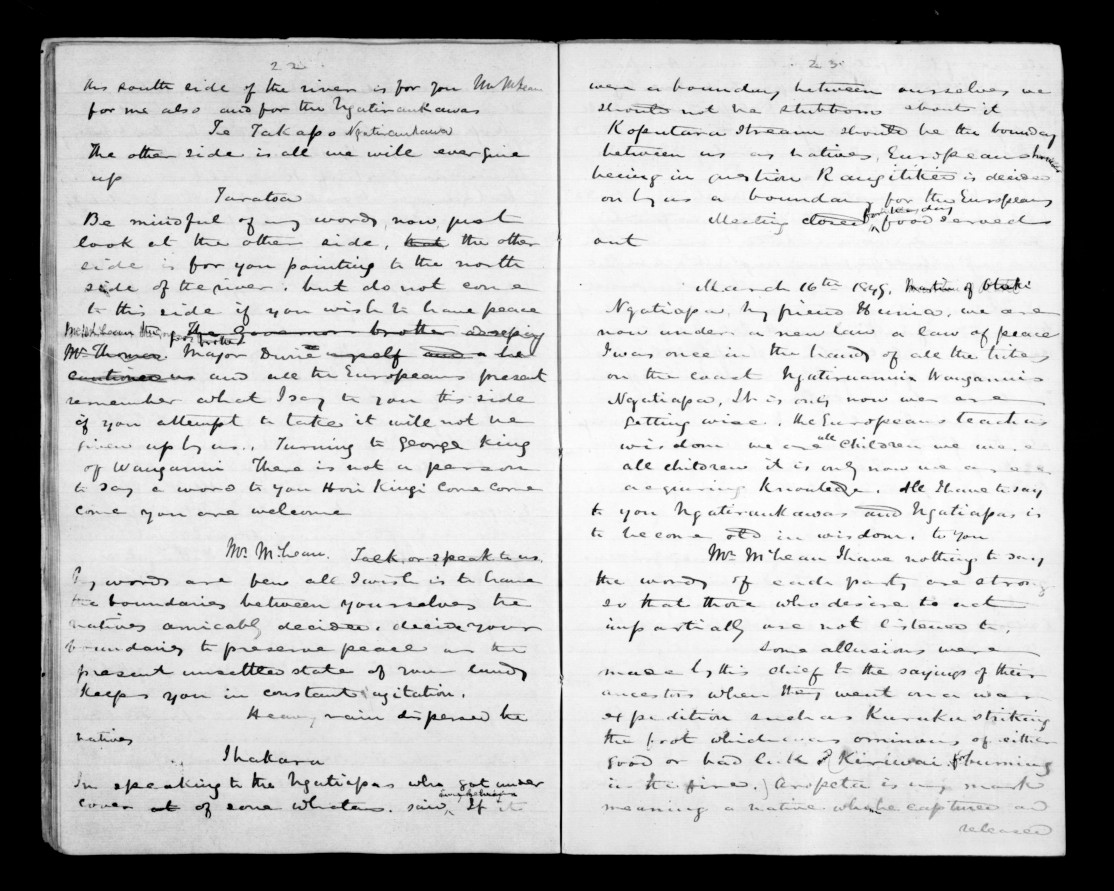 22.
this south side of the river is for you Mr McLean
for me also and for the Ngatiraukawas
Te Takapo Ngatiraukawa
The other side is all we will ever give
up
Taratoa
Be mindful of my words, now, just
look at the other side, that the other
side is for you pointing to the north
side of the river, but do not come
to this side if you wish to have peace
Mr McLean the Governor brother
Mr Thomas Major Durie myself and a he
cautioned us and all the Europeans present
remember what I say to you this side
if you attempt to take it will not be
given up by us. Turning to George King
of Wanganui There is not a person
to say a word to you Hori Kingi Come Come
Come you are welcome
Mr McLean. Talk or speak to us.
My words are few all I wish is to have
the boundaries between yourselves the
natives amicably decided. decide your
boundaries to preserve peace as the
present unsettled state of your lands
keeps you in constant agitation.
Heavy rain dispersed the
natives
Ihakara
In speaking to the Ngatiapas who got under
cover of some whatas. said, If
23.
were a boundary between ourselves we
should not be stubborn about it
Koputara stream should be the bounday
between us as natives, Europeans
being in question Rangitikei is decided
on by us a boundary for the Europeans
Meeting closed for the day food served
out
March 16th 1849. Meeting of
Ngatiapa, my friend Hunia, we are
now under a new law a law of peace
I was once in the hands of all the tribes
on the coast Ngatiruanuis Wanganuis
Ngatiapa, It is only now we are
getting wise. the Europeans teach us
wisdom we are all children we are
all children it is only now we are
acquiring knowledge. All I have to say
to you Ngatiraukawas and Ngatiapas is
to become old in wisdom. to you
Mr McLean I have nothing to say,
the words of each party are strong
so that those who desire to act
impartially are not listened to.
Some allusions were
made by this chief to the sayings of their
ancestors when they went on a war
expedition such as Kuruku striking
the foot which was ominous of either
good or bad luck & (Kiriwai for burning
in the fire.) Aropeta is my mark
meaning a native whom he captured and
released